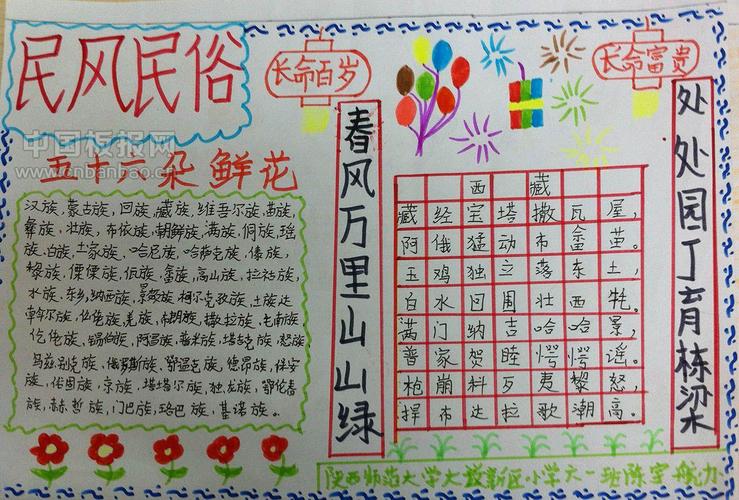 民风民俗
中国板报网
www.cnbanbao.cn
长命百岁
长命富贵
五十一朵鲜花
汉族，蒙古族，回族，藏族，维吾尔族，苗族，
彝族，壮族，布依族，朝鲜族，满族，侗族，瑶
族，白族，土家族，哈尼族，哈萨克族，傣族，
黎族，傈僳族，佤族，畲族，高山族，拉祜族，
水族，东乡，纳西族，景颇族，柯尔克孜族，土族达
斡尔族，仫佬族，羌族，布朗族，撒拉族，毛南族，
仡佬族，锡伯族，阿昌族，普米族，塔吉克族，怒族，
乌孜别克族，俄罗斯族，鄂温克族，德昂族，保安
族，裕固族，京族，塔塔尔族，独龙族，鄂伦春
族，赫哲族，门巴族，珞巴族，基诺族。
春风万里山山绿
西藏
藏经宝塔撒瓦屋，
阿俄猛动布畲苗。
玉鸡独立落东土，
白水回围壮西牦。
满门纳吉哈哈景，
普家贺睦愕愕谣。
枪崩料歹夷黎怒，
捍布达拉歌潮高。
处处园丁育栋梁
陕西师范大学大校新区小学六一班陈宇航力